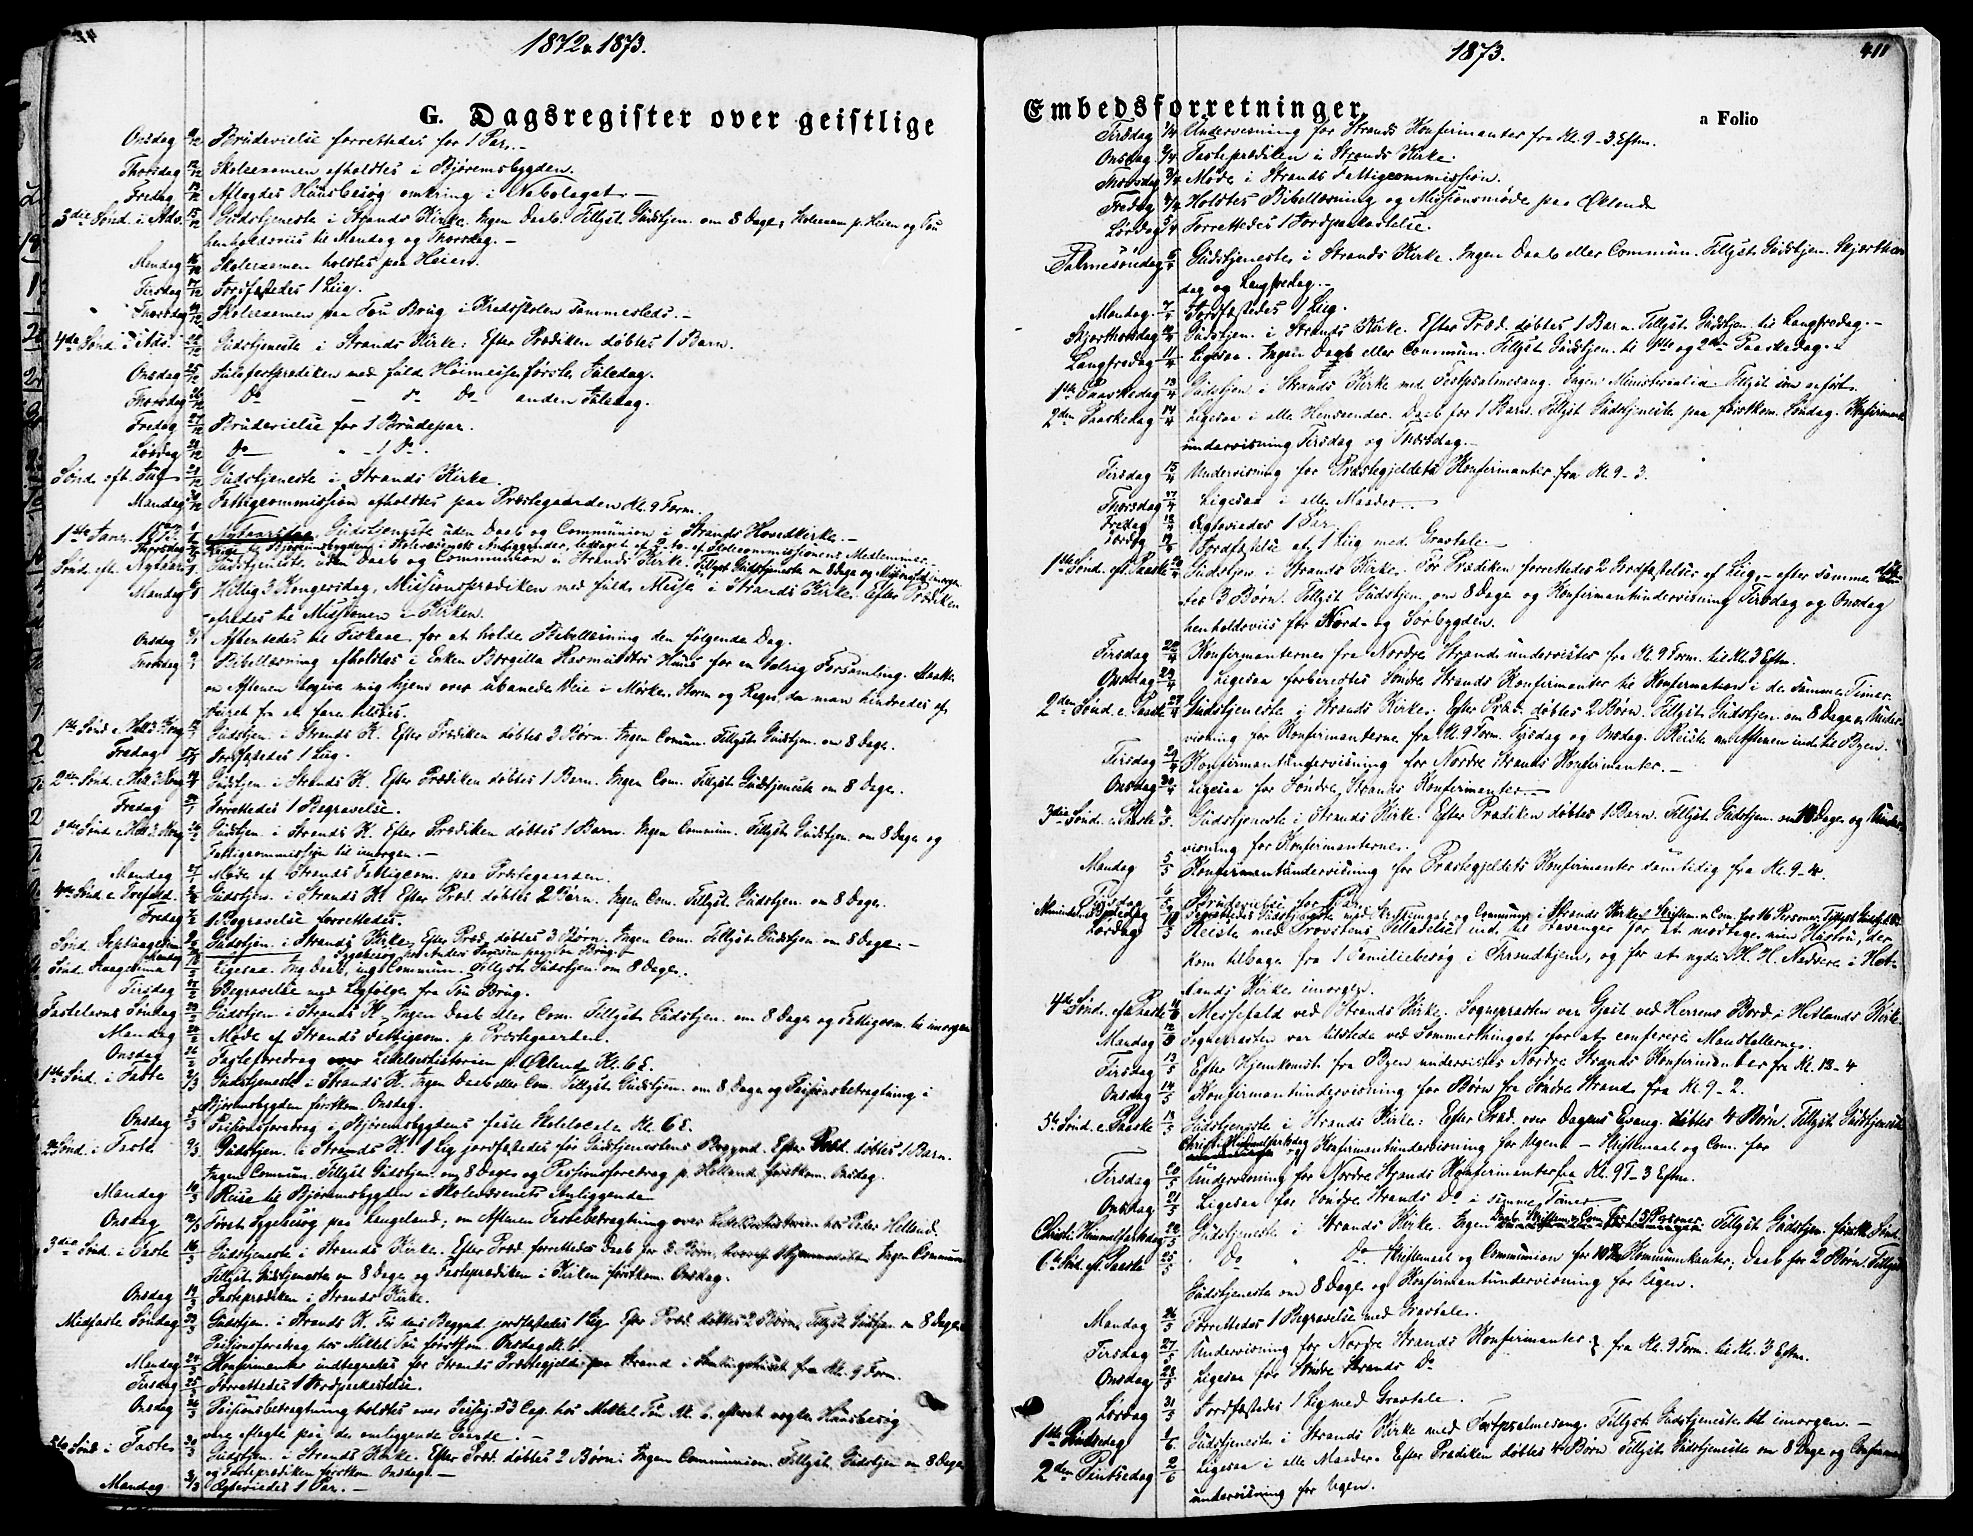 1872 & 1873.
G. Dagsregister over geistlige
Onsdag 11/12 Brudevielse forrettedes for 1 Par.
Thorsdag 12/12 Skoleexamen afholdtes i Bjøremsbygden.
Fredag 13/12 Aflagdes Huusbesøg omkring i Nabolaget.
3die Sønd. i Adv. 15/12 Gudstjeneste i Strands Kirke. Ingen Daab. Tillyst Gudstjen. om 8 Dage, Skoleexam. p. Heien og Tou
henholdsviis til Mandag og Thorsdag.
Mandag 16/12 Skoleexamen holdtes paa Heien.
Tirsdag 17/12 Jordfæstedes 1 Liig.
Thorsdag 19/12 Skoleexamen paa Tou Brug i Kredsskolen sammesteds.
4de Sønd. i Adv. 22/12 Gudstjeneste i Strands Kirke: Efter Prædiken døbtes 1 Barn.
Onsdag 25/12 Julefestprædiken med fuld Høimesse første Juledag.
Thorsdag 26/12 Do Do Do anden Juledag.
Fredag 27/12 Brudevielse for 1 Brudepar.
Lørdag 28/12 Do 1 Do.
Sønd. eft. Jul 29/12 Gudstjeneste i Strands Kirke.
Mandag 30/12 Fattigcommission afholdtes paa Præstegaarden Kl. 9 Form.
1ste Janr. 1873. 1/1 Nytaarsdag. Gudstjeneste uden Daab og Communion i Strands Hovedkirke.
Thorsdag Reise til Bjøremsbygden i Skolevæsenets Anliggender, ledsaget af 2 af Skolecommissionens Medlemmer.
Sønd. eft. Nytaar 5/1 Gudstjeneste uden Daab og Communion i Strands Kirke. Tillyst Gudstjeneste om 8 Dage og imorgen
Mandag 6/1 Hellig 3 Kongersdag, Missionsprædiken med fuld Messe i Strands Kirke. Efter Prædiken
ofredes til Missionen i Kirken.
Onsdag 8/1 Afhentedes til Fiskaae for at holde Bibellæsning den følgende Dag.
Thorsdag 9/1 Bibellæsning afholdtes i Enken Børgilla Rasmusdtrs Huus for en talrig Forsamling. Maatte
om Aftenen begive mig hjem over ubanede Veie i Mørke, Storm og Regn, da man hindredes af
Veiret fra at fare tilsøes.
1ste Sønd. e. Hell. 3 Kong. 12/1 Gudstjen. i Strands K. Efter Prædiken døbtes 3 Børn. Ingen Comun. Tillyst Gudstjen. om 8 Dage.
Fredag 17/1 Jordfæstedes 1 Liig.
2den Sønd. e. Hell. 3 Kong. 19/1 Gudstjen. i Strands K. Efter Prædiken døbtes 1 Barn. Ingen Com. Tillyst Gudstjeneste om 8 Dage.
Fredag 24/1 Forrettedes 1 Begravelse.
3die Sønd. e. Hell. 3 Kong. 26/1 Gudstjen. i Strands K. Efter Prædiken døbtes 1 Barn. Ingen Commun. Tillyst Gudstjen. om 8 Dage og
Fattigcommission til imorgen.
Mandag 27/1 Møde af Strands Fattigcom. paa Præstegaarden.
4de Sønd. e. 2/2 Gudstjen. i Strands K. Efter Præd. døbtes 2 Børn. Ingen Com. Tillyst Gudstjen. om 8 Dage.
Fredag 7/2 1 Begravelse forrettedes.
Sønd. Septuagesima 9/2 Gudstjen. i Strands Kirke. Efter Præd. døbtes 3 Børn. Ingen Com. Tillyst Gudstjen. om 8 Dage.
Sønd. Sexagesima 16/2 Ligesaa. Ing. Daab, ing. Commun. Tillyst Gudstjen. om 8 Dage.
Tirsdag Begravelse med Ligfølge fra Tou Brug.
Fastelavns Søndag 23/2 Gudstjen. i Strands K. Ingen Daab eller Com. Tillyst Gudstjen. om 8 Dage og Fattigcom. til imorgen
Mandag 24/2 Møde af Strands Fattigcom. p. Præstegaarden.
Onsdag 26/2 Fasteforedrag over Lidelseshistorien p. Østland Kl. 6 E.
1ste Sønd. i Faste 2/3 Gudstjeneste i Strands K. Ingen Daab eller Com. Tillyst Gudstjen. om 8 Dage og Passionsbetragtning i
Bjøremsbygden førstkom. Onsdag.
Onsdag 5/3 Passionsforedrag i Bjøremsbygdens faste Skolelocale Kl. 6 E.
2den Sønd. i Faste 9/3 Gudstjen. i Strands K. 1 Lig jordfæstedes før Gudstjenestens Begynd. Efter Præd. døbtes 1 Barn.
Ingen Commun. Tillyst Gudstjen. om 8 Dage og Passionsforedrag p. Helland førstkom. Onsdag.
Mandag 10/3 Reise til Bjøremsbygden i Skolevæsenets Anliggende
Onsdag 12/3 Først Sygebesøg paa Lengeland; om Aftenen Fastebetragtning over Lidelseshistorien hos Peder Helland.
3die Sønd. i Faste 16/3 Gudstjeneste i Strands Kirke. Efter Præd. forrettedes Daab for 3 Børn, hvoraf 1 hjemmedøbt. Ingen Communion
Tillyst Gudstjeneste om 8 Dage og Fasteprædiken i Kirken førstkom. Onsdag.
Onsdag 19/3 Fasteprædiken i Strands Kirke.
Midfaste Søndag 23/3 Gudstjen. i Strands K. Før dens Begynd. jordfæstedes 1 Lig. Efter Præd. døbtes 2 Børn. Tillyst Gudstjen. om 8 Dage.
Passionsforedrag hos Mikkel Tou førstkom. Onsdag Kl. 6.
Mandag 24/3 Konfirmanter indtegnedes for Strands Præstegjeld paa Strand i Samlingshuset fra Kl. 9 Form.
Tirsdag 25/3 Forrettedes 1 Jordpaakastelse.
Onsdag 26/3 Passionsbetragtning holdtes over Jesaj. 53 Cap. hos Mikkel Tou Kl. 6, efterat nogle Huusbesøg
vare aflagte paa de omliggende Gaarde.
5te Sønd. i Faste 30/3 Gudstjen. i Strands Kirke. Efter Præd. døbtes 2 Børn. Ingen Communion. Tillyst Gudstjen. om 8 Dage
og Fasteprædiken førstkom. Onsdag.
Mandag 31/3 Ægteviedes 1 Par.
1873.
411
Embedsforretninger.
a Folio
Tirsdag 1/4 Undervisning for Strands Konfirmanter fra Kl. 9-3 Eftm.
Onsdag 2/4 Fasteprædiken i Strands Kirke.
Thorsdag 3/4 Møde i Strands Fattigcommission.
Fredag 4/4 Holdtes Bibellæsning og Missionsmøde paa Østland
Lørdag 5/4 Forrettedes 1 Jordpaakastelse.
Palmesøndag 6/4 Gudstjeneste i Strands Kirke. Ingen Daab eller Commun. Tillyst Gudstjen. Skjærthors
dag og Langfredag.
Mandag 7/4 Jordfæstedes 1 Liig.
Skjærthorsdag 10/4 Gudstjen. i Strands Kirke. Efter Præd. døbtes 1 Barn. Tillyst Gudstjen. til Langfredag.
Langfredag 11/4 Ligesaa. Ingen Daab eller Commun. Tillyst Gudstjen. til 1ste og 2den Paaskedag.
1ste Paaskedag 13/4 Gudstjen. i Strands Kirke med Festpsalmesang. Ingen Ministerialia. Tillyst som anført.
2den Paaskedag 14/4 Ligesaa i alle Henseender. Daab for 1 Barn. Tillyst Gudstjeneste paa førstkom. Søndag. Konfirmant
undervisning Tirsdag og Thorsdag.
Tirsdag 15/4 Undervisning for Præstegjeldets Konfirmanter fra Kl. 9-3.
Thorsdag 17/4 Ligesaa i alle Maader.
Fredag 18/4 Ægteviedes 1 Par.
Lørdag 19/4 Jordfæstelse af 1 Liig med Gravtale.
1ste Sønd. eft. Paaske 20/4 Gudstjen. i Strands Kirke. Før Prædiken forrettedes 2 Jordfæstelser af Liig, efter samme døb-
tes 3 Børn. Tillyst Gudstjen. om 8 Dage og Konfirmantundervisning Tirsdag og Onsdag
henholdsviis for Nord- og Sørbygden.
Tirsdag 22/4 Konfirmanterne fra Nordre Strand undervistes fra Kl. 9 Form. til Kl. 3 Eftm.
Onsdag Ligesaa forberedtes Søndre Strands Konfirmanter til Konfirmation i de samme Timer.
2den Sønd. e. Paaske 27/4 Gudstjeneste i Strands Kirke. Efter Præd. døbtes 2 Børn. Tillyst Gudstjen. om 8 Dage og Under-
visning for Konfirmanterne fra Kl. 9 Form. Tirsdag og Onsdag. Reiste om Aftenen ind til Byen.
Tirsdag 29/4 Konfirmantundervisning for Nordre Strands Konfirmanter.
Onsdag 30/4 Ligesaa for Søndre Strands Konfirmanter
3die Sønd. e. Paaske 4/5 Gudstjeneste i Strands Kirke. Efter Prædiken døbtes 1 Barn. Tillyst Gudstjen. om Dage og Under-
visning for Konfirmanterne.
Mandag 5/5 Konfirmantundervisning for Præstegjeldets Konfirmanter samtidig fra Kl. 9-4.
Tirsdag 6/5 Brudevielse for 1 Par.
Forrettedes Gudstjeneste med Skriftemaal og Communion i Strands Kirke. Skriftem. & Com. for 16 Personer. Tillyst
Lørdag 10/5 Reiste med Provstens Tilladelse ind til Stavanger for at modtage min Hustru, der
kom tilbage fra 1 Familiebesøg i Throndhjem, og for at nyde H. H. Nadvere i Het-
lands Kirke imorgen.
4de Sønd. eft. Paaske 11/5 Messefald ved Strands Kirke. Sognepræsten var Gjæst ved Herrens Bord i Hetlands Kirke.
Mandag 12/5 Sognepræsten var tilstede ved Sommerthinget for at conferere Mandtallerne.
Tirsdag 13/5 Efter Hjemkomst fra Byen undervistes Nordre Strands Konfirmanter fra Kl. 12-4
Onsdag 14/5 Konfirmantundervisning for Børn fra Søndre Strand fra Kl. 9-2.
5te Sønd. e. Paaske 18/5 Gudstjeneste i Strands Kirke: Efter Præd. over Dagens Evang. døbtes 4 Børn. Tillyst Gudstjeneste
Christi Himmelfartsdag og Konfirmantundervisning for Ugen - Skriftemaal og Com. for
Tirsdag 20/5 Undervisning for Nordre Strands Konfirmanter fra Kl. 9-3 Eftm.
Onsdag 21/5 Ligesaa for Søndre Strands Do i samme Timer
Christi Himmelfartsdag 22/5 Gudstjeneste i Strands Kirke. Ingen Daab. Skriftem. & Com. for 15 Personer. Tillyst Gudstjen. førstk. Sønd.
6te Sønd. eft. Paaske 25/5 Do Do Skriftemaal og Communion for Kommunikanter; Daab for 2 Børn. Tillyst
Gudstjeneste om 8 Dage og Konfirmantundervisning for Ugen.
Mandag 26/5 Forrettedes 1 Begravelse med Gravtale.
Tirsdag 27/5 Undervisning for Nordre Strands Konfirmanter } fra Kl. 9 Form. til Kl. 3 Eftm.
Onsdag 28/5 Ligesaa for Søndre Strands Do
Lørdag 31/5 Jordfæstedes 1 Lig med Gravtale.
1ste Pintsedag 1/6 Gudstjeneste i Strands Kirke med Festpsalmesang. Tillyst Gudstjeneste til imorgen.
2den Pintsedag 2/6 Ligesaa i alle Maader. Efter Prædiken døbtes 4 Børn. Tillyst Gudstjeneste om 8 Dage og Confirmant
undervisning for Ugen.